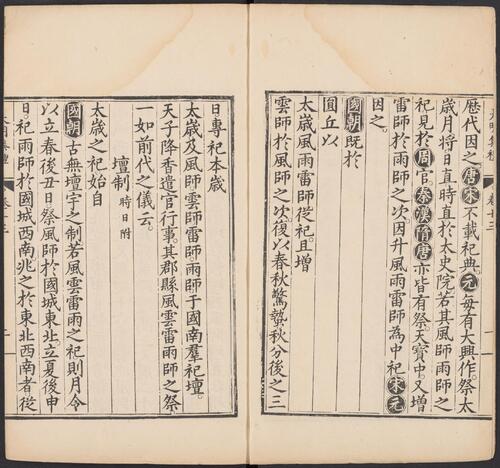 歷代因之唐宋不載祀典元每有大興作祭太
歲月將日直時直於太史院若其風師雨師之
祀見於周官秦漢隋唐亦皆有祭天寶中又增
雷師於雨師之次因升風雨雷師為中祀宋元
因之
國朝既於
圜丘以
太歲風雨雷師從祀且增
雲師於風師之次復以春秋驚蟄秋分後之三
日專祀本歲
太歲及風師雲師雷師雨師于國南羣祀壇
天子降香遣官行事其郡縣風雲雷雨師之祭
一如前代之儀云
壇制 時日附
太歲之祀始自
國朝古無壇宇之制若風雲雷雨之祀則月令
以立春後丑日祭風師於國城東北立夏後申
日祀雨師於國城西南兆之於東北西南者從
大明集禮
卷十三